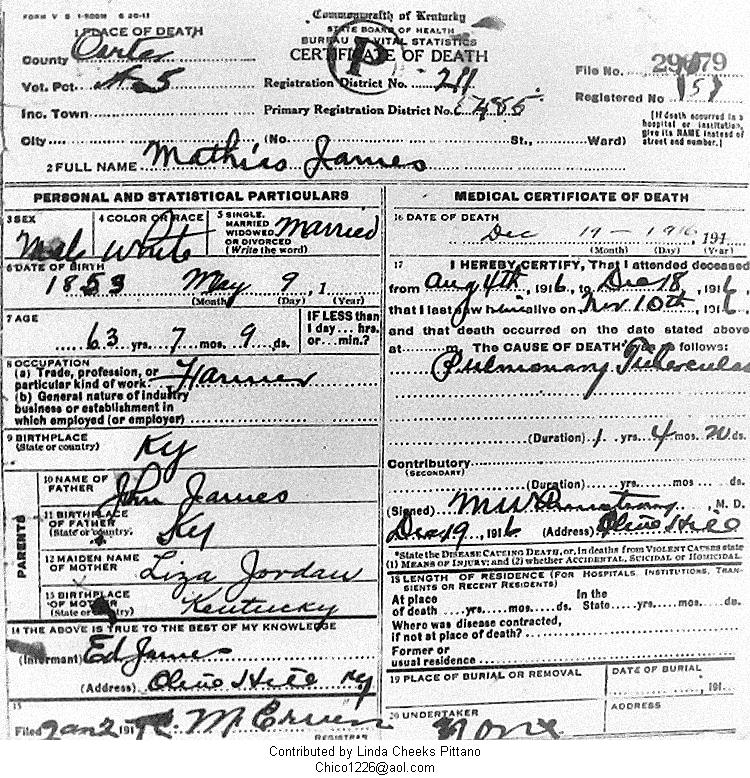 FORM V S 1-500M 6 20-11
Commonwealth of Kentucky
STATE BOARD OF HEALTH
BUREAU OF VITAL STATISTICS
CERTIFICATE OF DEATH
P
1 PLACE OF DEATH
County Carter
Vot. Pct. 5
Inc. Town
Registration District No. 211
Primary Registration District No. 5485
File No. 29 79
Registered No 157
City (No St., Ward)
[If death occurred in a hospital or institution, give its NAME instead of street and number.]
2 FULL NAME Mathias James
PERSONAL AND STATISTICAL PARTICULARS
3 SEX Male
4 COLOR OR RACE White
5 SINGLE, MARRIED WIDOWED OR DIVORCED (Write the word) Married
6 DATE OF BIRTH
1853 May 9, 1
(Month) (Day) (Year)
7 AGE
63 yrs. 7 mos. 9 ds.
IF LESS than
1 day... hrs.
or... min.?
8 OCCUPATION
(a) Trade, profession, or
particular kind of work Farmer
(b) General nature of industry
business or establishment in
which employed (or employer)
9 BIRTHPLACE
(State or country) Ky
PARENTS
10 NAME OF
FATHER John James
11 BIRTHPLACE
OF FATHER
(State or country) Ky
12 MAIDEN NAME
OF MOTHER Liza Jordan
13 BIRTHPLACE
OF MOTHER
(State or country) Kentucky
14 THE ABOVE IS TRUE TO THE BEST OF MY KNOWLEDGE
(Informant) Ed James
(Address) Olive Hill Ky
15
Filed Jan 2 191
REGISTRAR
MEDICAL CERTIFICATE OF DEATH
16 DATE OF DEATH
Dec 19 - 1916, 191
(Month) (Day) (Year)
17 I HEREBY CERTIFY, That I attended deceased
from Aug 4th, 1916, to Dec 18, 1916,
that I last saw him alive on Nov 10th, 1916,
and that death occurred on the date stated above
at m. The CAUSE OF DEATH was as follows:
Pulmonary Tuberculosis
(Duration) 1 yrs. 4 mos. 20 ds.
Contributory
(SECONDARY)
(Duration) yrs. mos. ds.
(Signed) Armstrong, M. D.
Dec 19, 1916 (Address) Olive Hill
*State the DISEASE CAUSING DEATH, or, in deaths from VIOLENT CAUSES state
(1) MEANS OF INJURY; and (2) whether ACCIDENTAL, SUICIDAL or HOMICIDAL.
18 LENGTH OF RESIDENCE (FOR HOSPITALS, INSTITUTIONS, TRAN-
SIENTS OR RECENT RESIDENTS)
At place of death yrs. mos. ds. In the State yrs. mos. ds.
Where was disease contracted,
if not at place of death?
Former or
usual residence
19 PLACE OF BURIAL OR REMOVAL
DATE OF BURIAL
, 191
20 UNDERTAKER
None
ADDRESS
Contributed by Linda Cheeks Pittano
Chico1226@aol.com